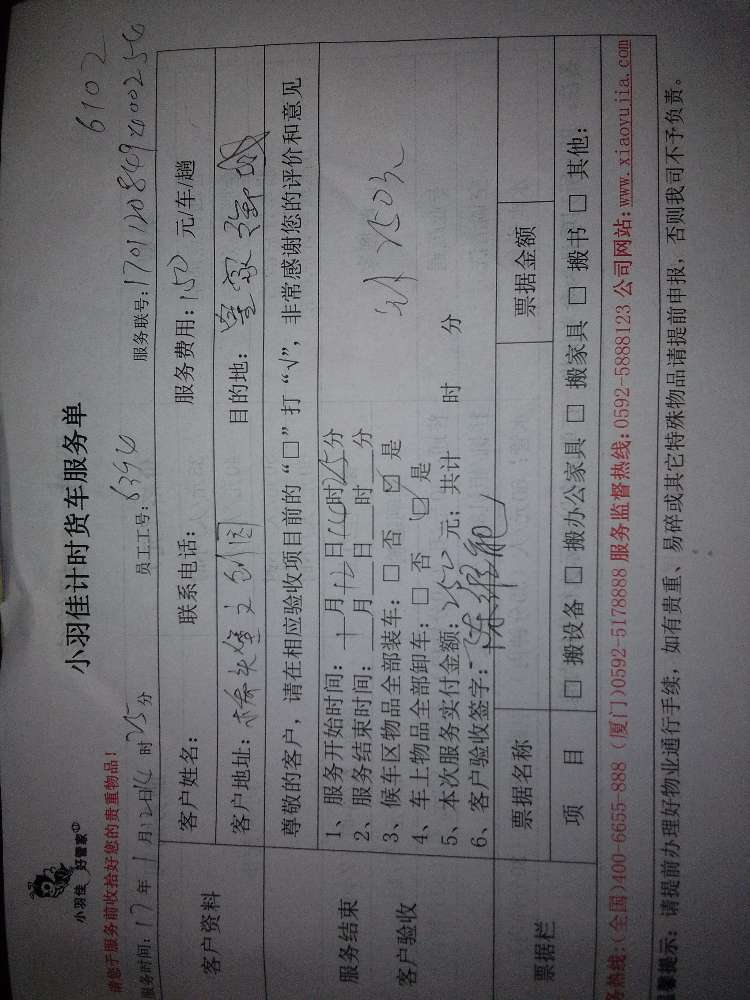 小羽佳 好管家
小羽佳计时货车服务单
6102
请您于服务前收拾好您的贵重物品!
服务时间: 17年 1月12日14时25分 员工工号: 6394 服务联号: 170112084924000254
客户资料
客户姓名: 联系电话: 服务费用: 150 元/车/趟
客户地址: 文创园 目的地: 皇家
尊敬的客户,请在相应验收项目前的“□”打“√”,非常感谢您的评价和意见
服务结束
客户验收
1、服务开始时间: 1月12日14时25分
2、服务结束时间: 月 日 时 分
3、候车区物品全部装车: □ 否 ☑ 是
4、车上物品全部卸车: □ 否 ☑ 是
5、本次服务实付金额: 250 元; 共计 时 分
250元
6、客户验收签字:
票据栏
票据名称 票据金额
项 目 □ 搬设备 □ 搬办公家具 □ 搬家具 □ 搬书 □ 其他:
务热线:(全国)400-6655-888 (厦门)0592-5178888 服务监督热线:0592-5888123 公司网站:www.xiaoyujia.com
馨提示: 请提前办理好物业通行手续, 如有贵重、易碎或其它特殊物品请提前申报, 否则我司不予负责。